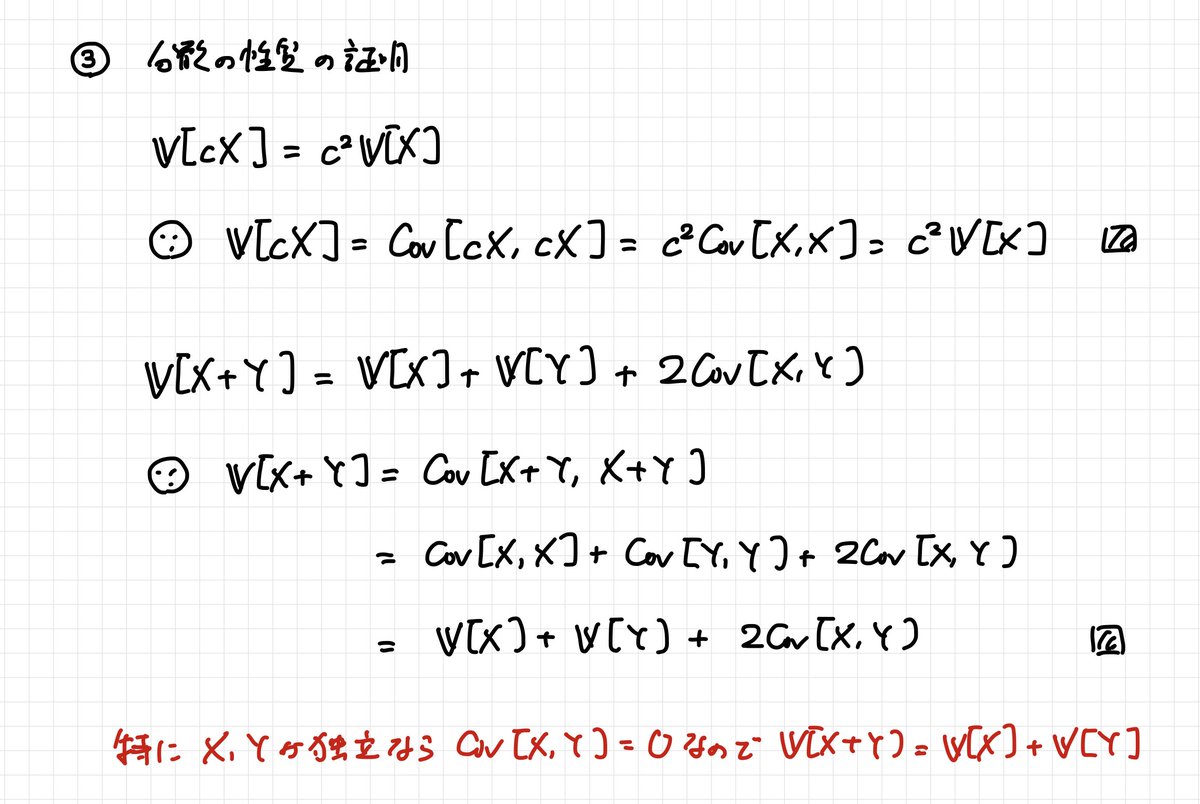 ③ 分散の性質の証明
𝕍[cX] = c²𝕍[X]
∵ 𝕍[cX] = Cov[cX, cX] = c²Cov[X,X] = c²𝕍[X]
𝕍[X+Y] = 𝕍[X] + 𝕍[Y] + 2Cov[X,Y]
∵ 𝕍[X+Y] = Cov[X+Y, X+Y]
= Cov[X,X] + Cov[Y,Y] + 2Cov[X,Y]
= 𝕍[X] + 𝕍[Y] + 2Cov[X,Y]
特に X,Y が独立なら Cov[X,Y] = 0 なので 𝕍[X+Y] = 𝕍[X] + 𝕍[Y]